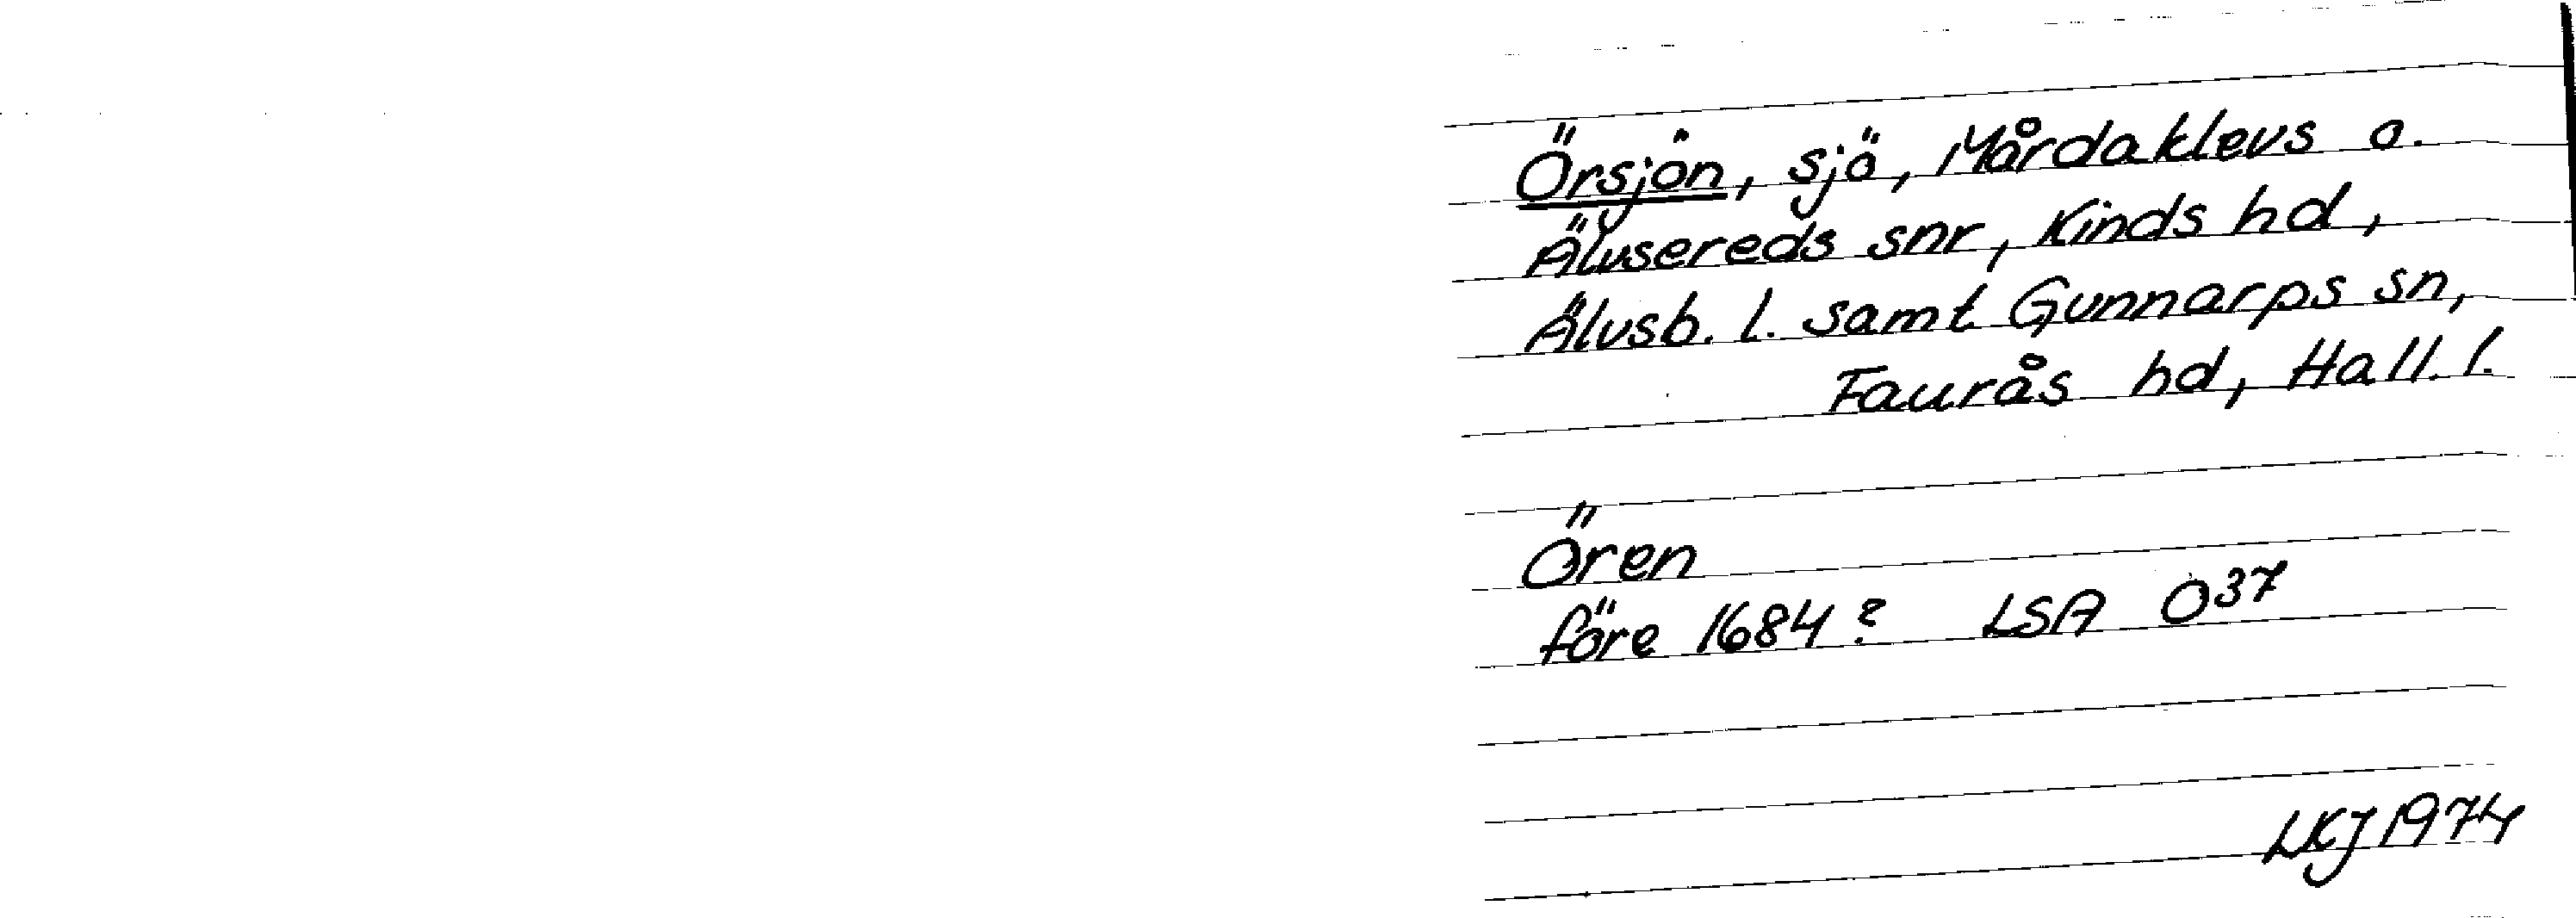 Örsjön, sjö, Mårdaklevs o.
Älvsereds snr, Kinds hd,
Älvsb. l. samt Gunnarps sn,
Faurås hd, Hall. l.
Ören
före 1684? LSA O37
LKJ 1974